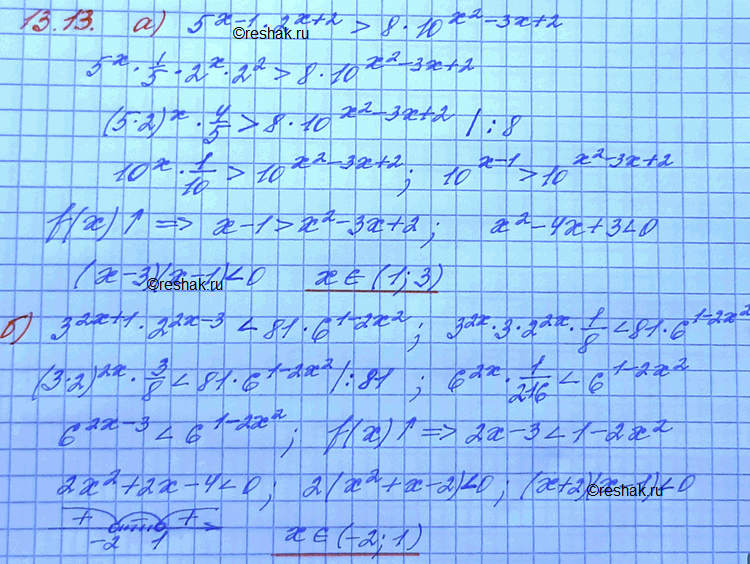 13.13. а) 5^(x-1) · 2^(x+2) > 8 · 10^(x²-3x+2)
©reshak.ru
5^x · 1/5 · 2^x · 2² > 8 · 10^(x²-3x+2)
(5·2)^x · 4/5 > 8 · 10^(x²-3x+2) | : 8
10^x · 1/10 > 10^(x²-3x+2) ; 10^(x-1) > 10^(x²-3x+2)
f(x)↑ => x-1 > x²-3x+2 ; x²-4x+3<0
(x-3)(x-1)<0 x ∈ (1; 3)
©reshak.ru
б) 3^(2x+1) · 2^(2x-3) < 81 · 6^(1-2x²) ; 3^(2x) · 3 · 2^(2x) · 1/8 < 81 · 6^(1-2x²)
(3·2)^(2x) · 3/8 < 81 · 6^(1-2x²) | : 81 ; 6^(2x) · 1/216 < 6^(1-2x²)
6^(2x-3) < 6^(1-2x²) ; f(x)↑ => 2x-3 < 1-2x²
2x²+2x-4<0 ; 2(x²+x-2)<0 ; (x+2)(x-1)<0
©reshak.ru
+ - +
-2 1 x ∈ (-2; 1)